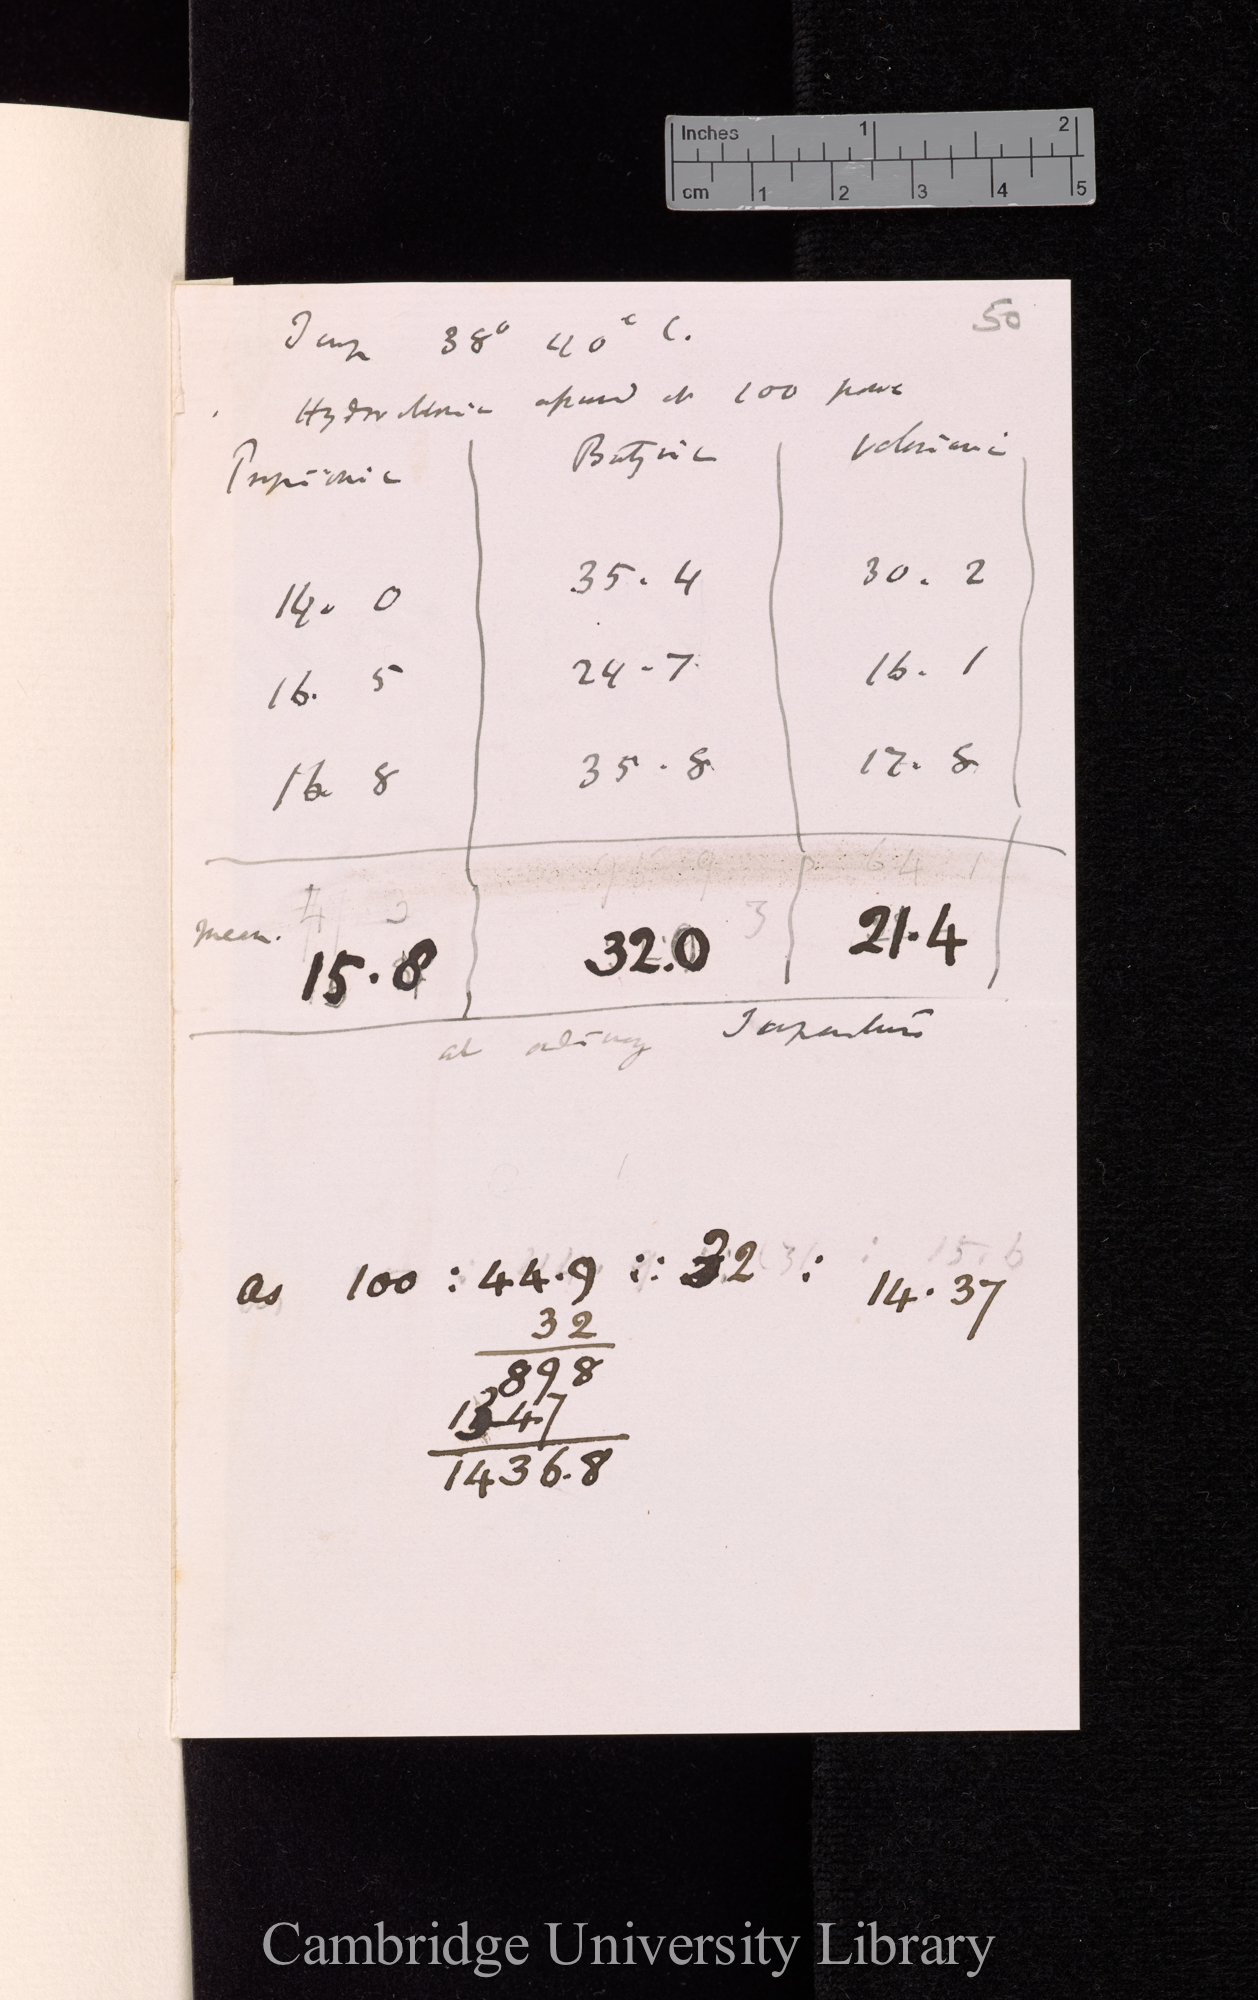 Inches 1 2
cm 1 2 3 4 5
50
Temp 38° 40° C.
Hydrochloric at 100
Propionic Butyric Valerianic
14.0 35.4 30.2
16.5 24.7 16.1
16.8 35.8 17.8
95 9 64 1
mean. 15.8 32.0 21.4
at ordinary Temperature
as 100 : 44.9 :: 32 : 14.37
32
898
1347
1436.8
Cambridge University Library